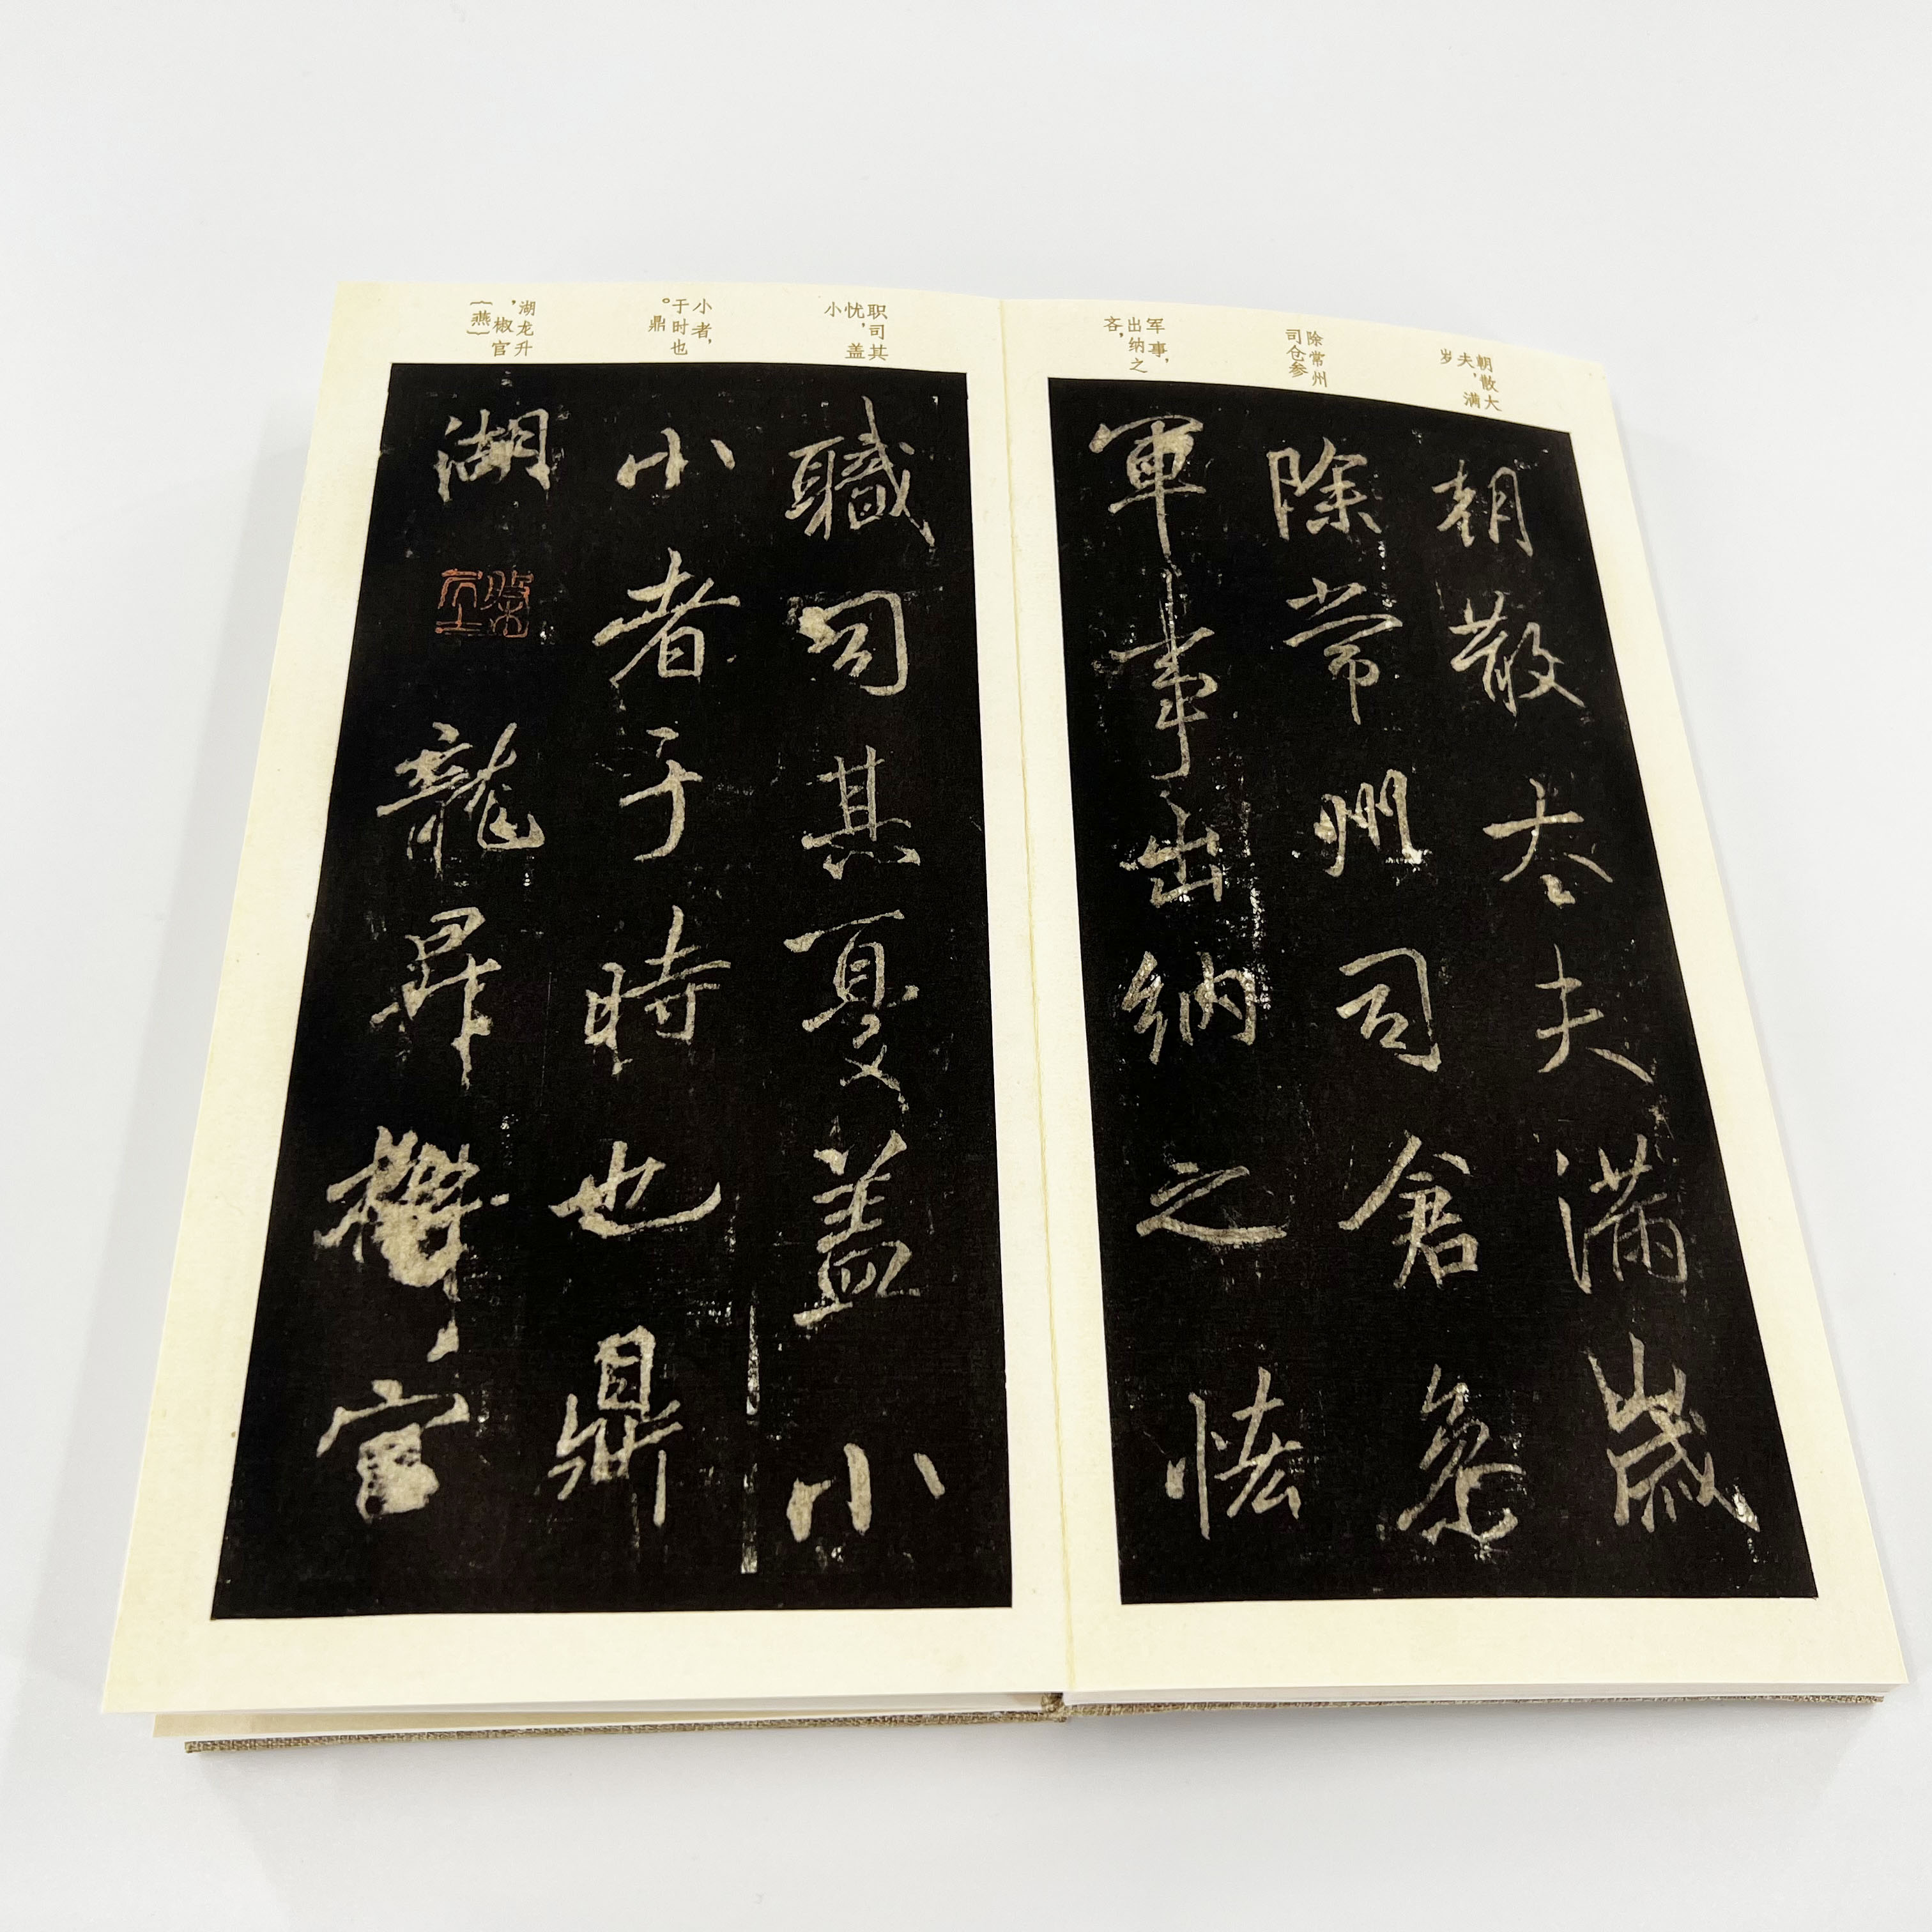 朝散大
夫，满
岁
除常州
司仓参
军事，
出纳之
吝，
朝散大夫满歲
除常州司倉参
軍事出纳之悋
职司其
忧，盖
小
小者，
于时也
。鼎
湖龙升
，椒官
（燕）
職司其憂盖小
小者于時也鼎
湖龍昇椒官